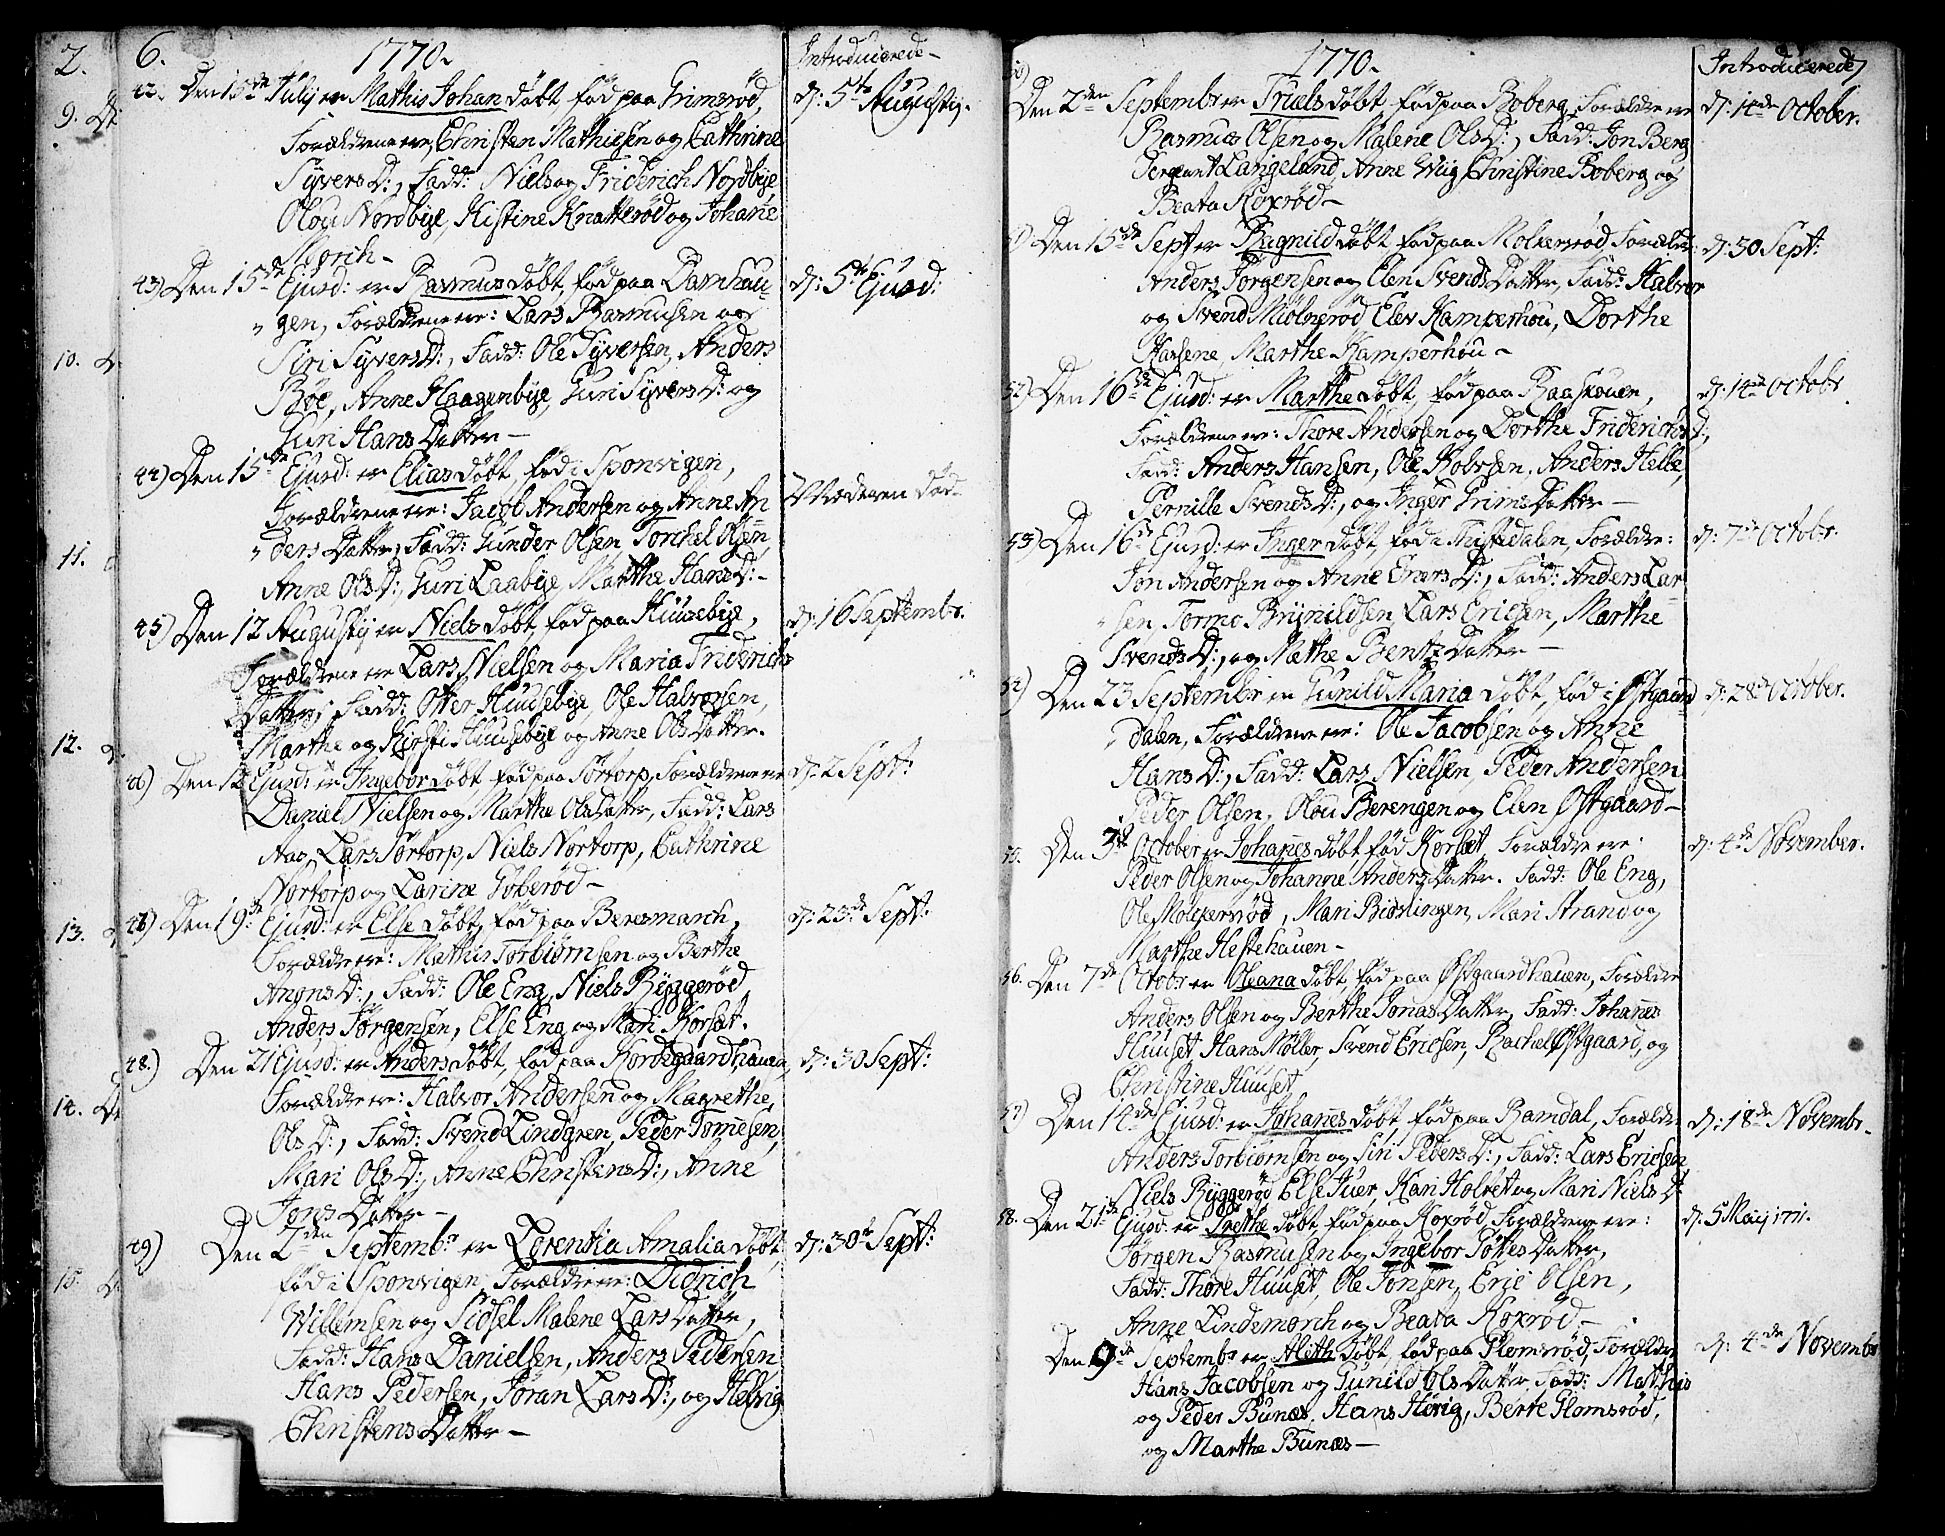 2.
9.
10.
11.
12.
13.
14.
15.
6.
1770.
Introducerede
42. Den 15de July er Mathis Johan døbt fød paa Grimsrød,
d: 5te Augustij.
Forældrene ere, Christen Mathiesen og Cathrine
Syvers D:, Fadd: Niels og Friderich Nordbye
Olou Nordbye, Kistine Knatterød og Johane
Morich
43) Den 15de Ejusd: er Rasmus døbt, fød paa Damhau-
d: 5te Ejusd:
gen, Forældrene ere: Lars Rasmusen og
Siri Syvers D:, Fadd: Ole Syversen, Anders
Böe, Anne Haagenbye, Guri Syvers D: og
Guri Hans Datter
44) Den 15de Ejusd: er Elias døbt, fød i Sponvigen,
Moderen død
Forældrene ere: Jacob Andersen og Anne An
ders Datter, Fadd: Gunder Olsen, Torchel Olsen
Anne Ols D:, Guri Laabye, Marthe Hans D:
45) Den 12 Augustij er Niels døbt, fød paa Huusebye,
d: 16 Septembr.
Forældrene ere Lars Nielsen og Maria Friderichs
Datter, Fadd: Otter Huusebye, Ole Halvorsen,
Marthe og Kirsti Huusebye og Anne Ols Datter.
46) Den 12 Ejusd: er Ingebor døbt fød paa Tortorp, Forældrene ere
d: 2 Sept:
Daniel Nielsen og Marthe Ols Datter, Fadd: Lars
Aas, Lars Tortorp, Niels Nortorp, Cathrine
Nortorp og Larine Goberød
47) Den 19de Ejusd: er Else døbt, fød paa Beresmarch,
d: 23de Sept:
Forældre ere: Mathis Torbiørnsen og Berthe
Anons D:, Fadd: Ole Eng, Niels Byggerød
Anders Jørgensen, Else Eng og Mari Korsæt.
48.) Den 21 Ejusd: er Anders døbt, fød paa Kordegaardhauen,
d: 30 Sept:
Forældre ere: Halvor Andersen og Magrethe
Ols D:, Fadd: Svend Lindgren, Peder Tomesen,
Mari Ols D:, Anne Christens D:, Anne
Jons Datter
49) Den 2den Septembr er Lorentia Amalia døbt,
d: 30te Sept:
fød i Sponvigen, Forældre ere: Didrich
Willemsen og Sidsel Malene Lars Datter,
Fadd: Hans Danielsen, Anders Pedersen
Hans Pedersen, Jöran Lars D:, og Helvig
Christens Datter
1770.
Introducerede
50) Den 2den Septembr er Truels døbt fød paa Boberg, Forældre ere
d: 14de October.
Rasmus Olsen og Malene Ols D:, Fadd: Jon Berg
Sergeant Langeland, Anne Wiig Christine Boberg og
Beata Roxrød
51) Den 15de Sept er Ragnild døbt fød paa Molkersrød Forældr:
d: 30 Sept:
Anders Jørgensen og Elen Svends Datter, Fadd: Halvor
og Svend Mölnerød Elev Kamperhou, Dorthe
Hansene, Marthe Kamperhou
52) Den 16de Ejusd: er Marthe døbt, fød paa Raaskouen,
d: 14de Octobr
Forældrene ere: Thore Andersen og Dorthe Friderichs D:,
Fadd: Anders Hansen, Ole Kolvsen, Anders Helle,
Pernille Svends D:, og Inger Grims Datter
53) Den 16de Ejusd: er Inger døbt, fød i Tistedalen, Forældre:
d: 7de Octobr.
Jon Andersen og Anne Eners D:, Fadd: Anders Lar
sen, Tormo Brynildsen, Lars Ericsen, Marthe
Svends D:, og Mæthe Bentz Datter
54) Den 23 Septembr er Gunild Maria døbt, fød i Østgaard
d: 28de October.
dalen, Forældrene ere: Ole Jacobsen og Anne
Hans D:, Fadd: Lars Nielsen, Peder Andersen
Peder Olsen, Olou Berengen og Elen Østgaard
55. Den 7de October er Johanes døbt fød Korsæt Forældre ere:
d: 4de November.
Peder Olsen og Johanne Anders Datter. Fadd: Ole Eng,
Ole Molkersrød, Mari Biørlingen, Mari Strand og
Marthe Hestehauen
56. Den 7de Octobr er Oleana døbt, fød paa Østgaardhauen, Forældre
Anders Olsen og Berthe Jonas Datter, Fadd: Johanes
Huuset, Hans Møller, Svend Ericsen, Rachel Østgaard, og
Christine Huuset
57) Den 14de Ejusd: er Johanes døbt, fød paa Ramdal, Forældre
d: 18de Novembr
Anders Torbiørnsen og Siri Peders D:, Fadd: Lars Ericsen
Niels Byggerød Else Iuer, Kari Holvet og Mari Niels D
58. Den 21de Ejusd: er Grethe døbt, fød paa Roxrød, Forældrene ere:
d: 5 Maij 1771.
Jørgen Rasmusen og Ingebor Pöttes Datter,
Fadd: Thore Huuset, Ole Jonsen, Eric Olsen,
Anne Lindemorch og Beata Roxrød
Den 9de Septembr er Aleth døbt, fød paa Plomsrød, Forældre
d: 4de Novembr
Hans Jacobsen og Gunild Ols Datter, Fadd: Mathis
og Peder Bunæs, Hans Hövig, Berte Glomsrød,
og Marthe Bunæs